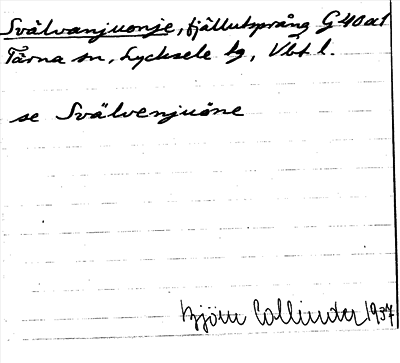 Svälvanjuonje, fjällutsprång G 40 a1
Tärna sn, Lycksele lg, Vbt l.
se Svälvenjuöne
Björn Collinder 1937